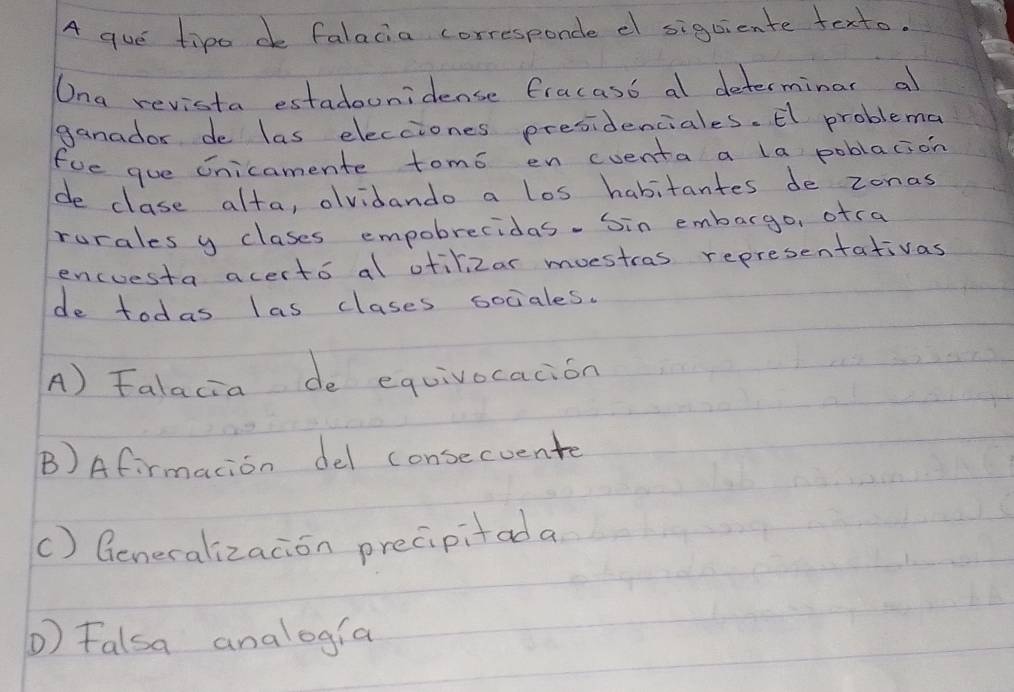 A qué tipo de falacia corresponde el siguiente texto.
Una revista estadounidense fracasó al determinar al
ganador de las elecciones presidenciales. El problema
fue que únicamente tomó en cuenta a la población
de clase alta, olvidando a los habitantes de zonas
rurales y clases empobrecidas. Sin embargo, otra
encuesta acertó al utilizar muestras representativas
de todas las clases sociales.
A) Falacia de equivocación
B) Afirmación del consecuente
C) Generalización precipitada
D) Falsa analogía